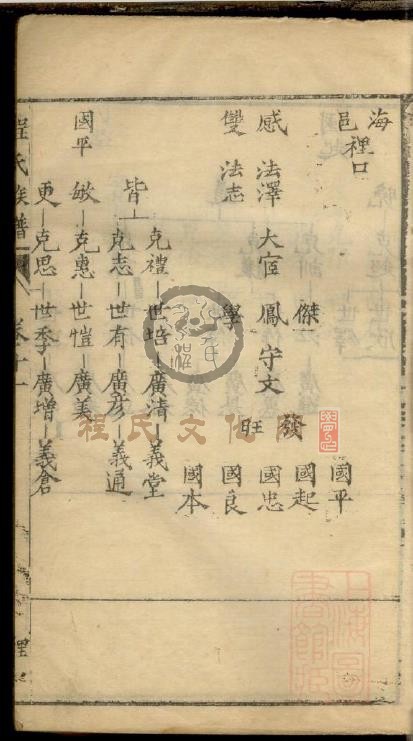 海邑裡口
傑 發 國平
國起
感 法澤 大宦 鳳 守文 國忠
雙 法志 學 旺 國良
國本
克禮 世培 廣清 義堂
皆 克志 世有 廣彥 義通
國平 敏 克惠 世愷 廣美
更 克思 世季 廣增 義倉
程氏族譜 卷十一
程氏文化
上海圖書館